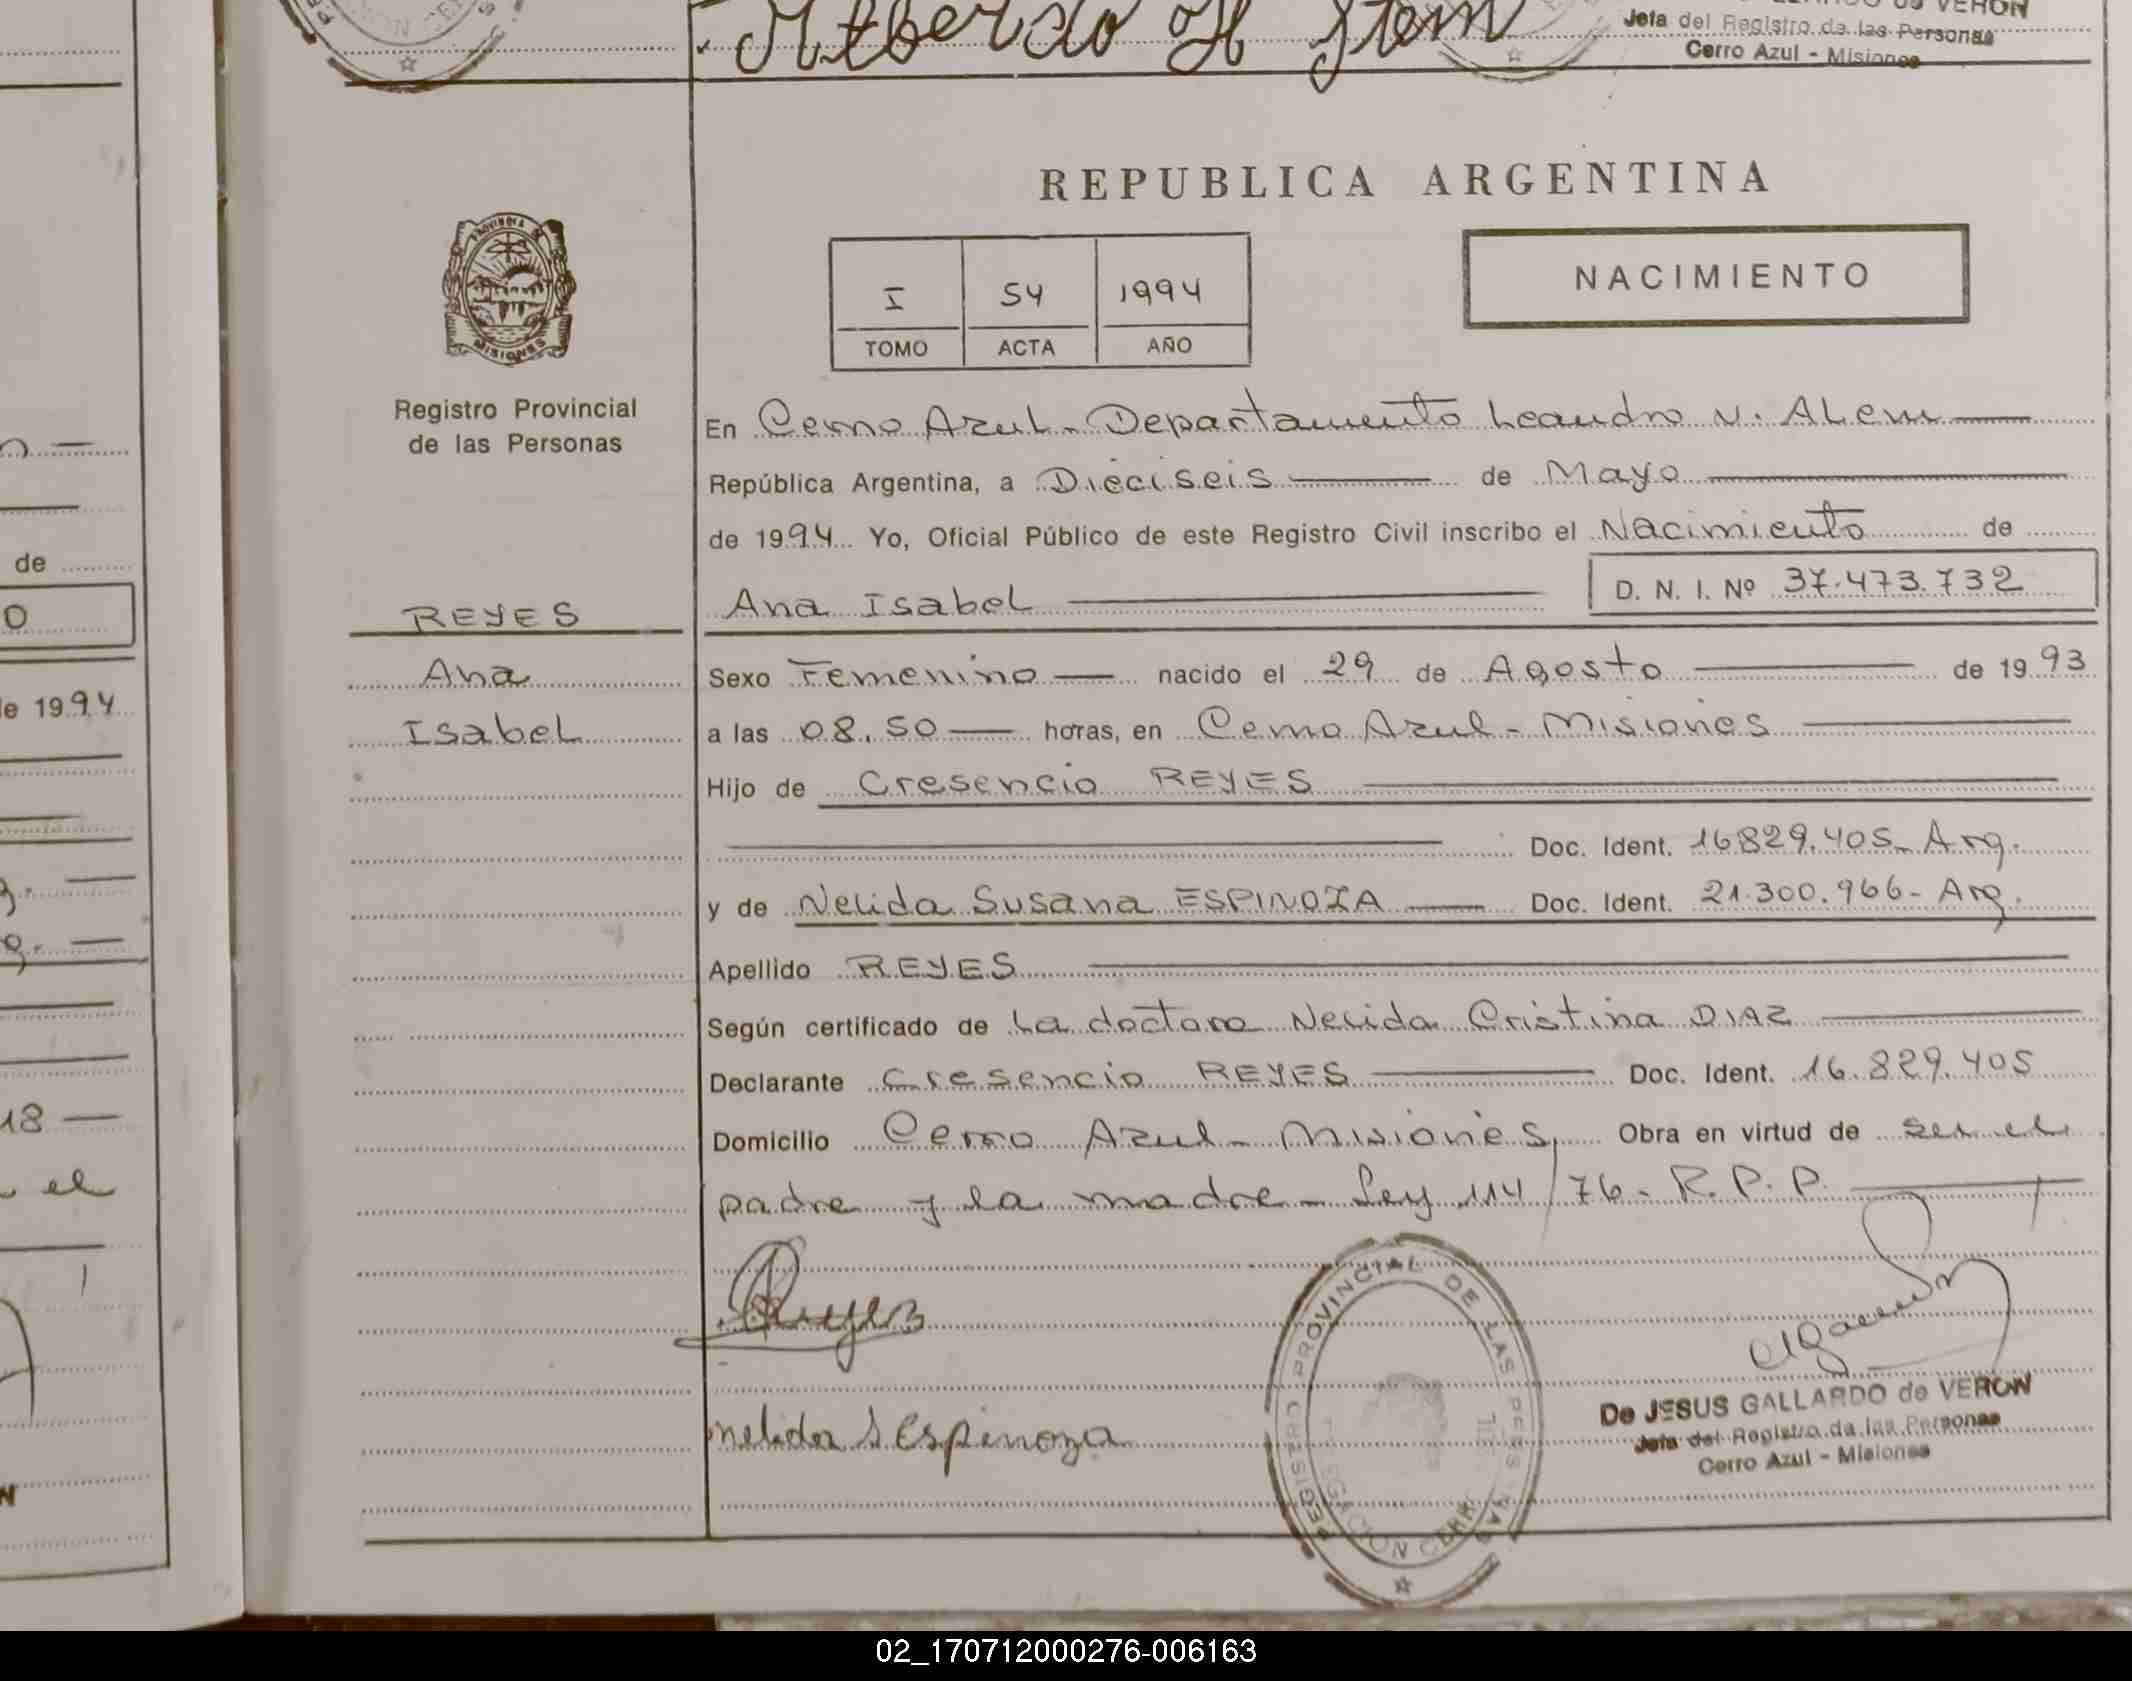 Alberto H Stem
Jefa del Registro de las Personas
Cerro Azul - Misiones
REPUBLICA ARGENTINA
PROVINCIA DE
MISIONES
I 54 1994
TOMO ACTA AÑO
NACIMIENTO
Registro Provincial
de las Personas
En Cerro Azul - Departamento Leandro N. Alem
República Argentina, a Dieciseis de Mayo
de 1994 Yo, Oficial Público de este Registro Civil inscribo el Nacimiento de
Ana Isabel D. N. I. Nº 37.473.732
REYES
Ana
Isabel
Sexo Femenino nacido el 29 de Agosto de 1993
a las 08,50 horas, en Cerro Azul - Misiones
Hijo de Cresencio REYES
Doc. Ident. 16829.405- Arg.
y de Nelida Susana ESPINOZA Doc. Ident. 21.300.966- Arg.
Apellido REYES
Según certificado de La doctora Nelida Cristina DIAZ
Declarante Cresencio REYES Doc. Ident. 16.829.405
Domicilio Cerro Azul - Misiones, Obra en virtud de ser el
padre y la madre - Ley 114/76- R.P.P.
Reyes
nelida S Espinoza
REGISTRO PROVINCIAL DE LAS PERSONAS
De JESUS GALLARDO de VERON
Jefa del Registro de las Personas
Cerro Azul - Misiones
de
O
de 1994
18
el
02_170712000276-006163